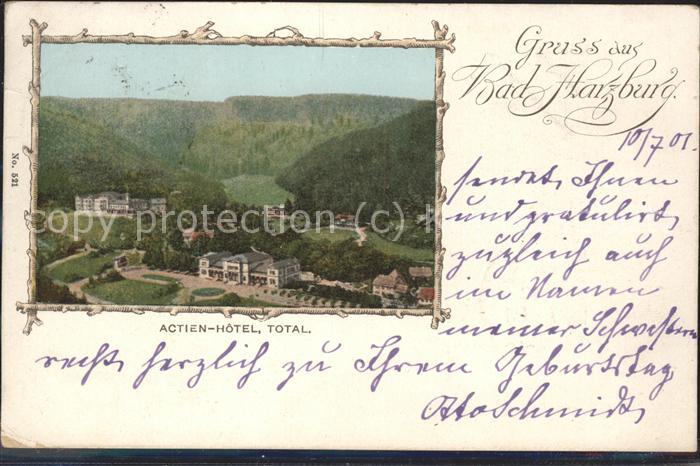 Gruss aus
Bad Harzburg.
10/7 01.
No. 521
sendet Ihnen
und gratulirt
zugleich auch
im Namen
meiner Schwestern
ACTIEN-HÔTEL, TOTAL.
recht herzlich zu Ihrem Geburtstag
Otto Schmidt
copyright protection (c) copyright